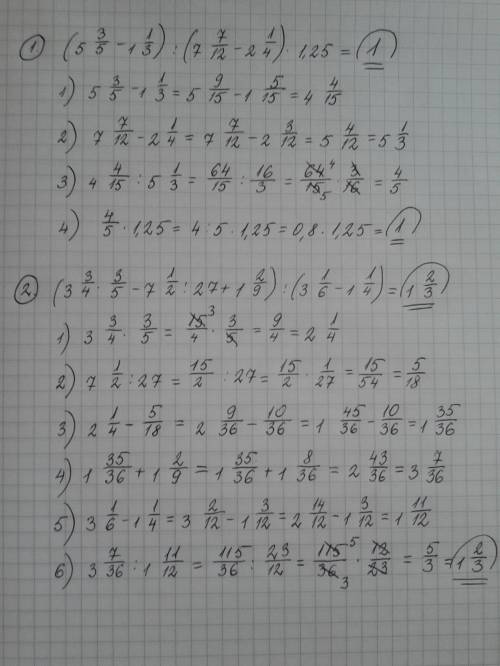 ① (5 3/5 - 1 1/3) : (7 7/12 - 2 1/4) · 1,25 = 1
1) 5 3/5 - 1 1/3 = 5 9/15 - 1 5/15 = 4 4/15
2) 7 7/12 - 2 1/4 = 7 7/12 - 2 3/12 = 5 4/12 = 5 1/3
3) 4 4/15 : 5 1/3 = 64/15 : 16/3 = 64 4/15 5 · 3/16 = 4/5
4) 4/5 · 1,25 = 4 : 5 · 1,25 = 0,8 · 1,25 = 1
②. (3 3/4 · 3/5 - 7 1/2 : 27 + 1 2/9) : (3 1/6 - 1 1/4) = 1 2/3
1) 3 3/4 · 3/5 = 15 3/4 · 3/5 = 9/4 = 2 1/4
2) 7 1/2 : 27 = 15/2 : 27 = 15/2 · 1/27 = 15/54 = 5/18
3) 2 1/4 - 5/18 = 2 9/36 - 10/36 = 1 45/36 - 10/36 = 1 35/36
4) 1 35/36 + 1 2/9 = 1 35/36 + 1 8/36 = 2 43/36 = 3 7/36
5) 3 1/6 - 1 1/4 = 3 2/12 - 1 3/12 = 2 14/12 - 1 3/12 = 1 11/12
6) 3 7/36 : 1 11/12 = 115/36 : 23/12 = 115 5/36 3 · 12/23 = 5/3 = 1 2/3